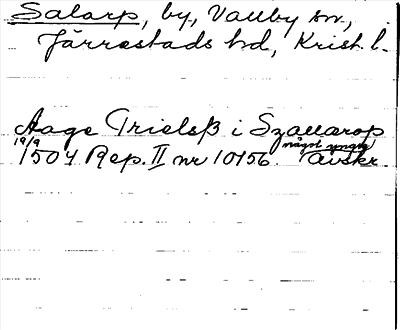 Salarp, by, Vallby sn.,
Järrestads hd, Krist. l.
Aage Trielsß i Szallarop
19/9 något yngre
1504 Rep. II nr 10156. avskr.